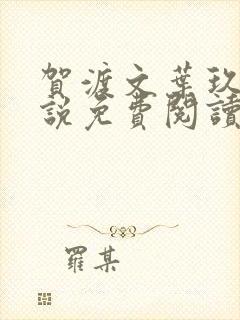 賀渡文葉玖
說免費閱讀
羅某